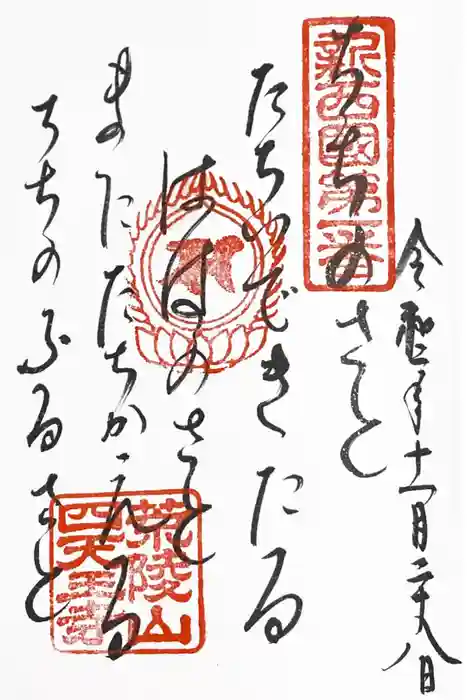 新西國第一番
令和年十一月二十八日
ちちのさと
たちいできたる
ははのさと
またたちかへる
ちちのふるさと
荒陵山
四天王寺